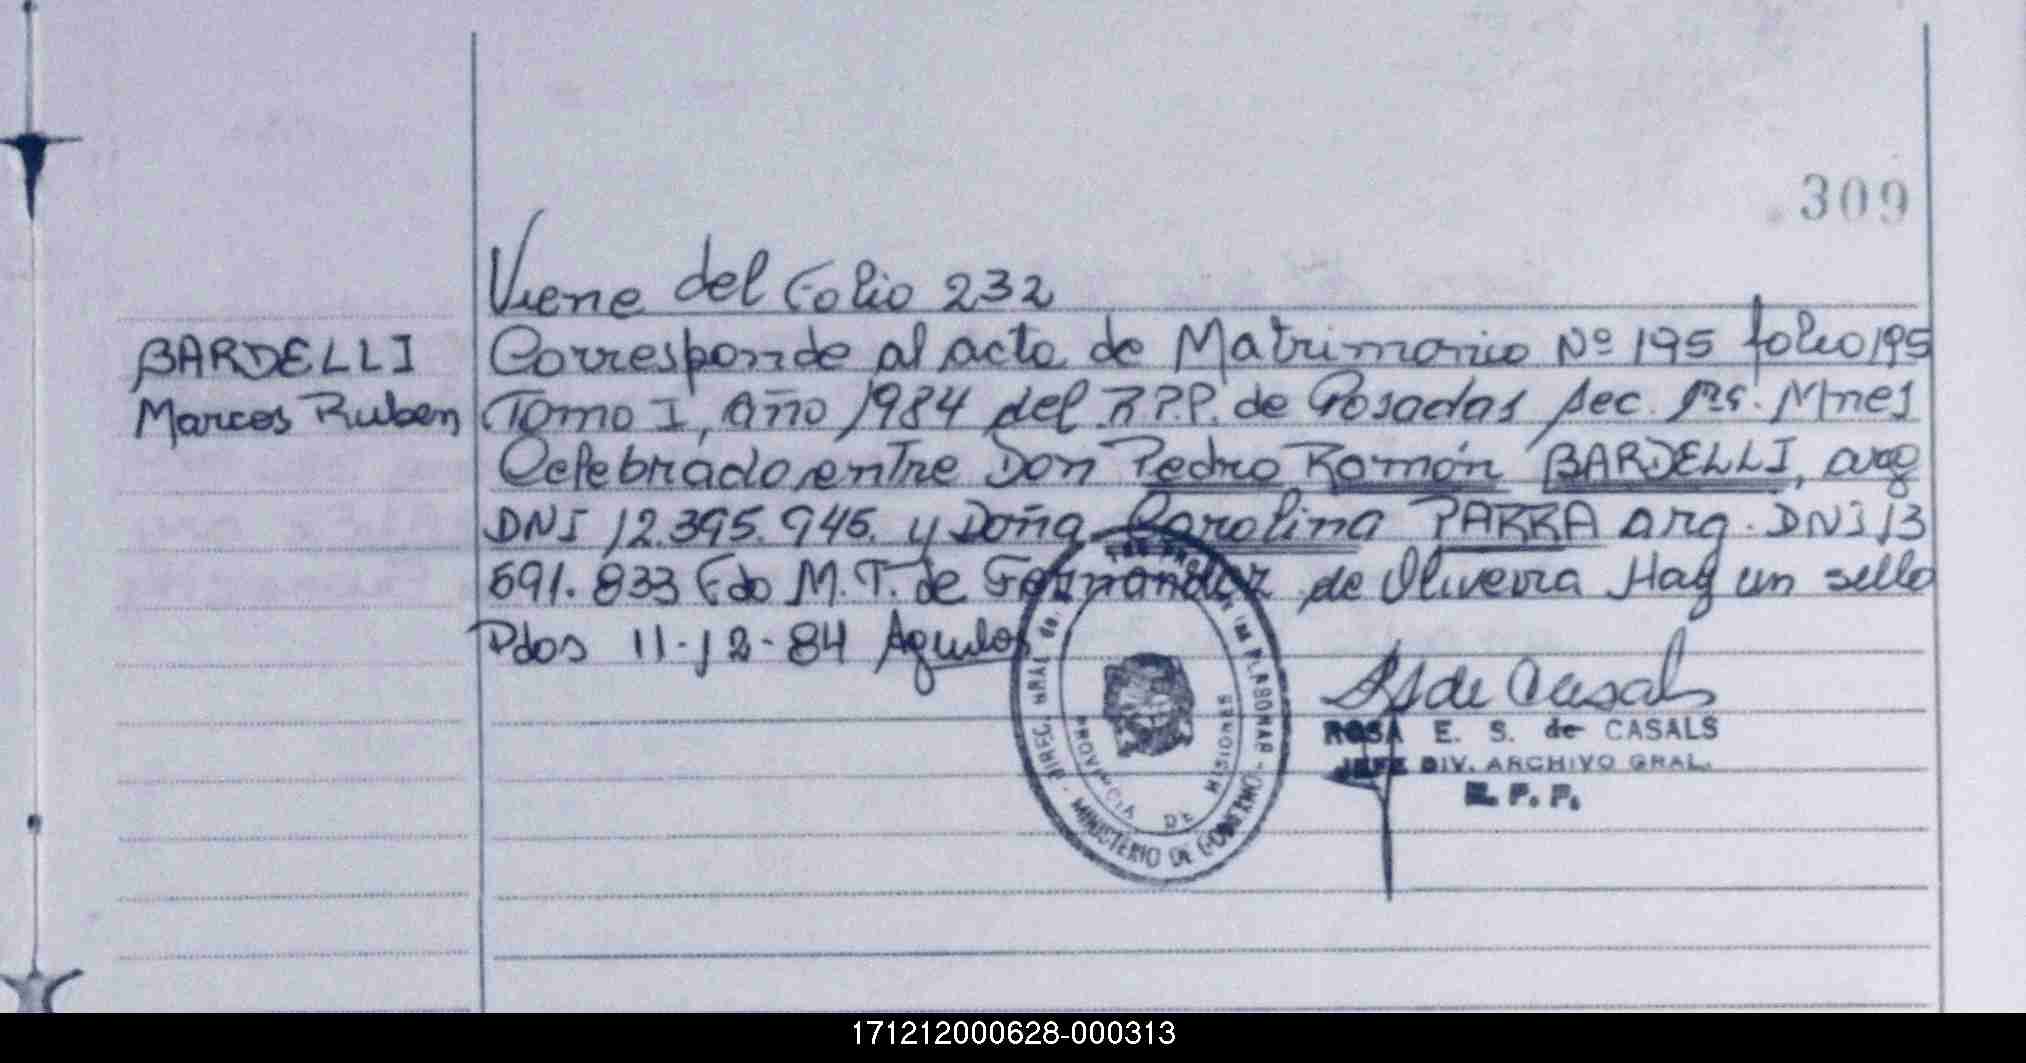 309
Viene del Folio 232
BARDELLI
Marcos Ruben
Corresponde al acta de Matrimonio Nº 195 folio 195
Tomo I, año 1984 del R.P.P. de Posadas Sec. Mnes
Celebrado entre Don Pedro Ramón BARDELLI, arg
DNI 12.395.945. y Doña Carolina PARRA arg. DNI 13
691.833 Fdo M.T. de Fernandez de Oliveira Hay un sello
Pdos 11-12-84
PROVINCIA DE MISIONES
MINISTERIO DE GOBIERNO
RS de Casals
ROSA E. S. de CASALS
JEFE DIV. ARCHIVO GRAL.
R. P. P.
171212000628-000313